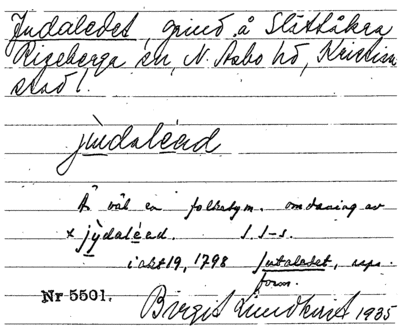 Judaledet, grind å Slättåkra
Riseberga sn, N. Åsbo hd, Kristian
stad l.
jùdaléad
Är väl en folketym. omdaning av
× jỳdaléad. S. I-s.
i akt 19, 1798 Jutaledet, upps.
form.
Nr 5501. Birgit Lindkvist 1935